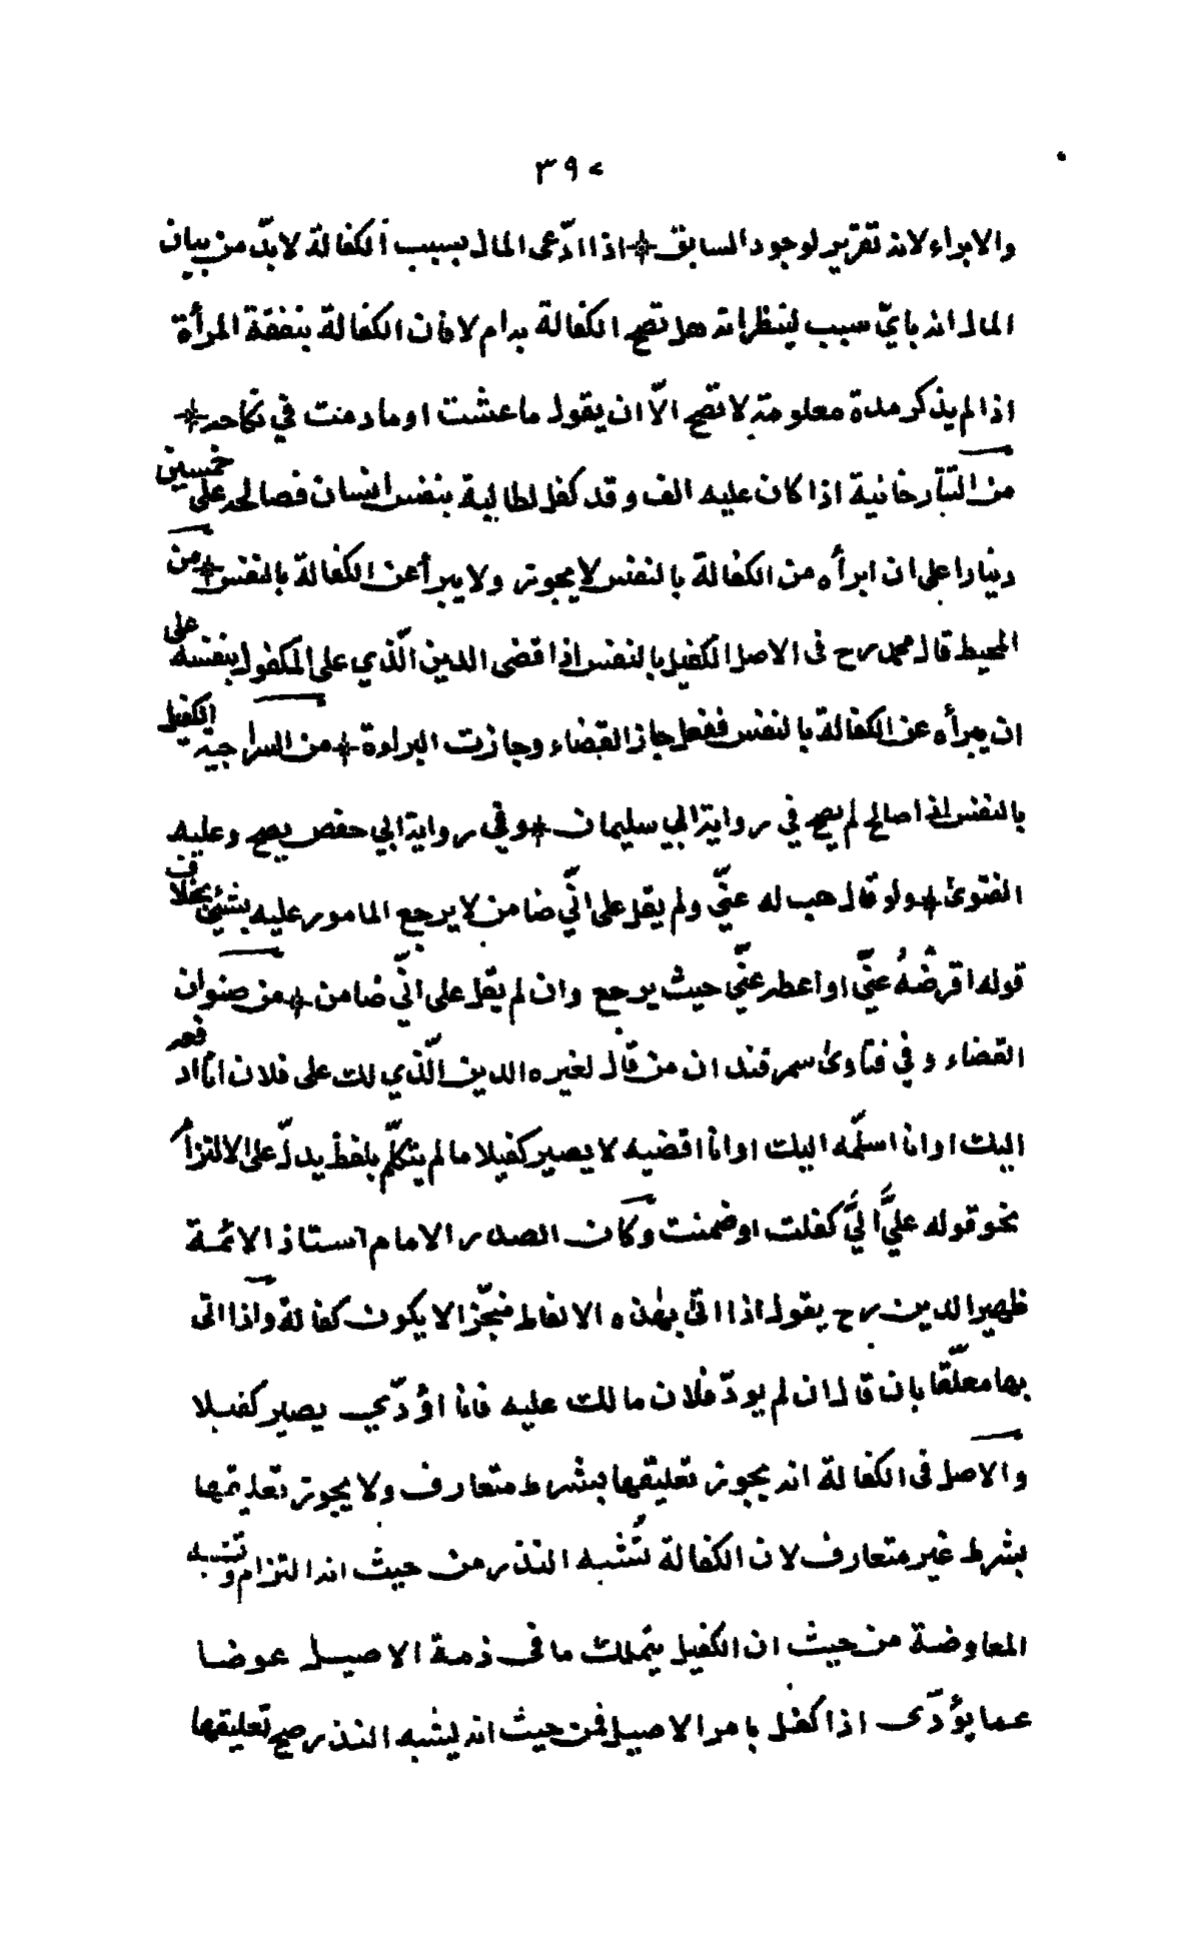 ٣٩٠
والابراء لانه تقرير لوجود السابق * اذا ادّعى المال بسبب الكفالة لا بدّ من بيان
المال انه بايّ سبب لينظر انه هل تصح الكفالة به ام لا فان الكفالة بنفقة المرأة
اذا لم يذكر مدة معلومة لا تصح الّا ان يقول ما عشت او ما دمت في نكاحه *
من التتارخانية اذا كان عليه الف وقد كفل لطالبه بنفس انسان فصالحه على خمسين
دينارا على ان ابرأه من الكفالة بالنفس لا يجوز ولا يبرأ عن الكفالة بالنفس * من
المحيط قال محمد رح فى الاصل الكفيل بالنفس اذا قضى الدين الّذي على المكفول بنفسه على
ان يبرأه عن الكفالة بالنفس ففعل جاز القضاء وجازت البراءة * من السراجية الكفيل
بالنفس اذا صالح لم يصح في رواية ابي سليمان * وفي رواية ابي حفص يصح وعليه
الفتوى * ولو قال هب له عنّي ولم يقل على انّي ضامن لا يرجع المامور عليه بشئ بخلاف
قوله اقرضْهُ عنّي او اعطه عنّي حيث يرجع وان لم يقل على انّي ضامن * من صنوان
القضاء وفي فتاوى سمرقند ان من قال لغيره الدين الّذي لك على فلان انا ادفعه
اليك او انا اسلّمه اليك او انا اقضيه لا يصير كفيلا ما لم يتكلّم بلفظ يدلّ على الالتزام
نحو قوله عليَّ اليَّ كفلت او ضمنت وكان الصدر الامام استاذ الائمة
ظهير الدين رح يقول اذا اتى بهذه الالفاظ منجّزا لا يكون كفالة واذا اتى
بها معلّقا بان قال ان لم يودّ فلان ما لك عليه فانا اؤدّي يصير كفيلا
والاصل فى الكفالة انه يجوز تعليقها بشرط متعارف ولا يجوز تعليقها
بشرط غير متعارف لان الكفالة تُشبه النذر من حيث انه التزام وتشبه
المعاوضة من حيث ان الكفيل يتملك ما فى ذمة الاصيل عوضا
عما يؤدّى اذا كفل بامر الاصيل فمن حيث انه يشبه النذر صح تعليقها